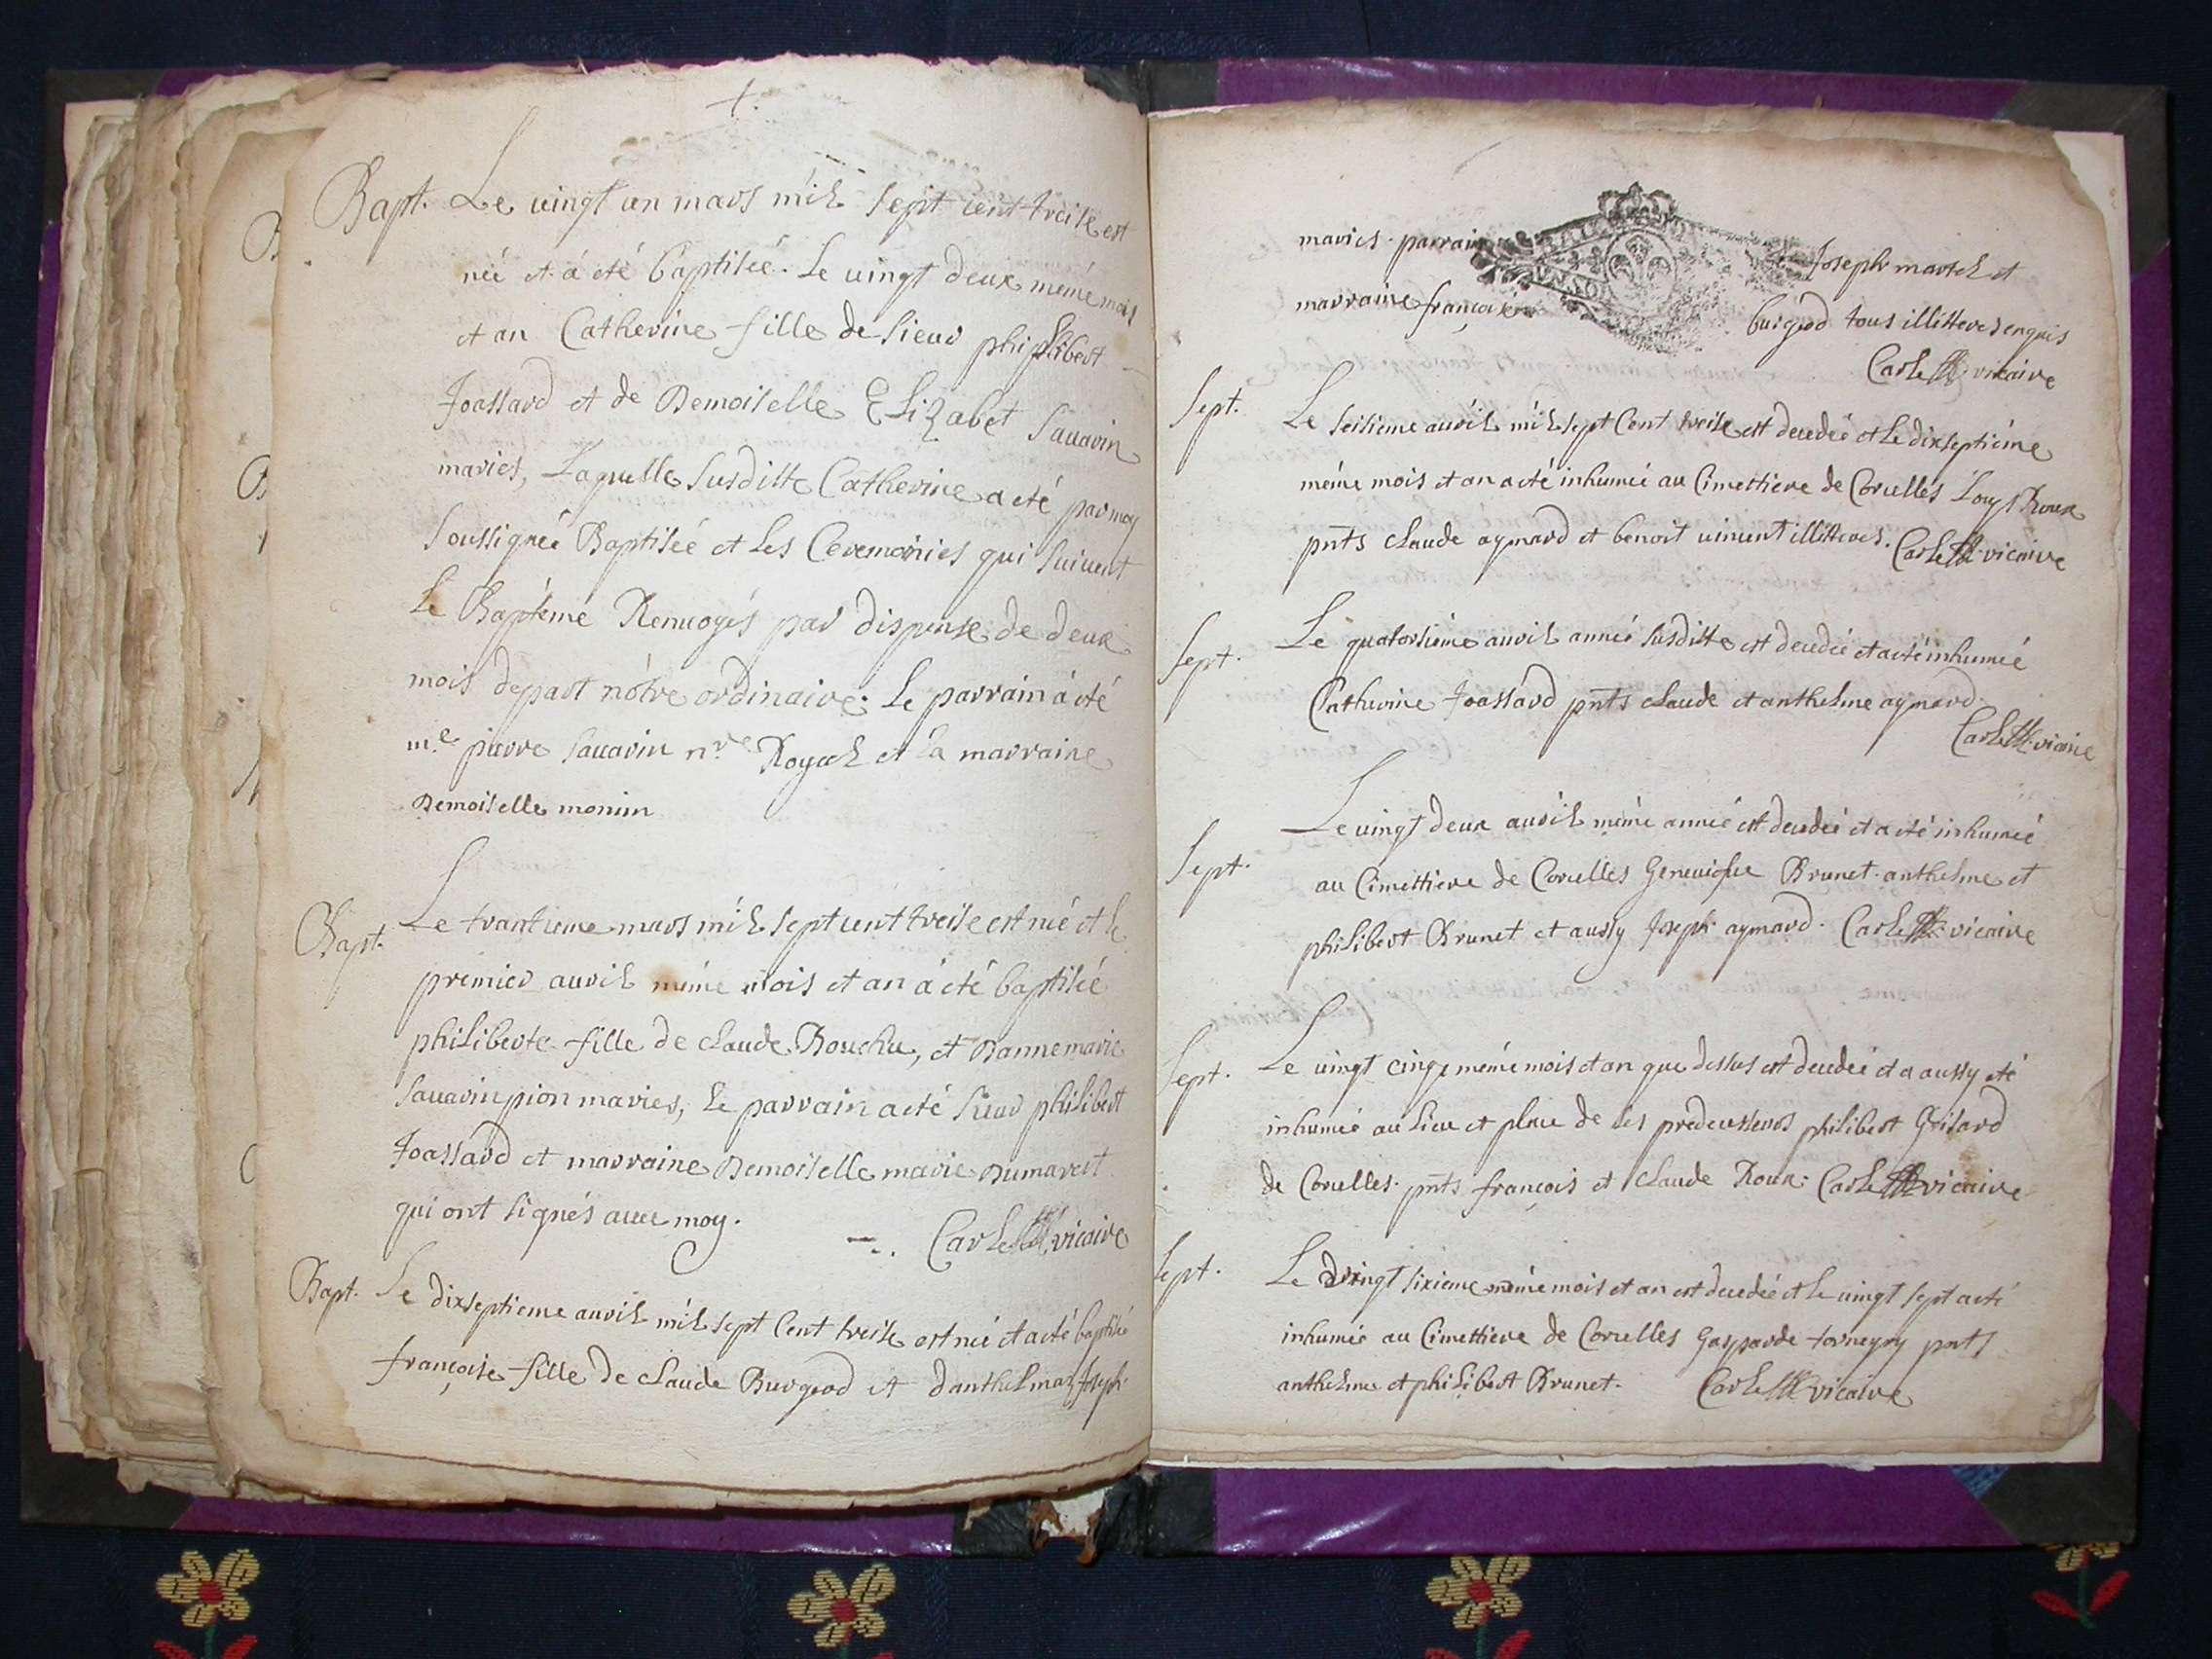 +.
Bapt. Le vingt un mars mil sept cent treise est
née et á eté baptiseé. Le vingt deux méme mois
et an Catherine fille de sieur philibert
Joassard et de Demoiselle Elizabet Sauarin
mariés, Laquelle susditte Catherine a eté par moy
soussignée Baptiseé et les Ceremonies qui suivent
Le Baptéme Renuoyés par dispense de deux
mois depart nótre ordinaire. Le parrain á eté
m.e pierre Sauarin n.re Royal et La marraine
Demoiselle monin
Bapt. Le trantieme mars mil sept cent treise est né et le
premier auril méme mois et an á eté baptiseé
philiberte fille de claude Bouchu, et Dannemarie
Sauarin pion mariés, Le parrain a eté sieur philibert
Joassard et marraine Demoiselle marie Dumarest
qui ont signés auec moy.
Carle vicaire
Bapt. Le dixseptieme auril mil sept Cent treise est né et a eté baptisé
françoise fille de claude Burgeod et danthelma Joseph
mariés. parrain Joseph martel et
marraine françoise burgeod tous illitteres enquis
Carle vicaire
Sept. Le seisieme auril mil sept Cent treise est decedeé et le dixseptiéme
méme mois et an a eté inhumeé au Cimettiere de Corcelles Louys Roux
pnts claude aymard et benoit uincent illitteres. Carle vicaire
Sept. Le quatorsiéme auril anneé susditte est decedeé et a eté inhumeé
Catherine Joassard pnts claude et anthelme aymard.
Carle vicaire
Sept. Le uingt deux auril méme anneé est decedeé et a eté inhumeé
au Cimettiere de Corcelles Geneuiefue Brunet. anthelme et
philibert Brunet et aussy Joseph aymard. Carle vicaire
Sept. Le uingt cinq méme mois et an que dessus est decedeé et a aussy eté
inhumeé au Lieu et place de ses predecesseurs philibert Grisard
de Corcelles. pnts françois et claude Roux. Carle vicaire
Sept. Le vingt sixieme méme mois et an est decedeé et le uingt sept a eté
inhumeé au Cimettiere de Corcelles Gasparde pnts
anthelme et philibert Brunet. Carle vicaire